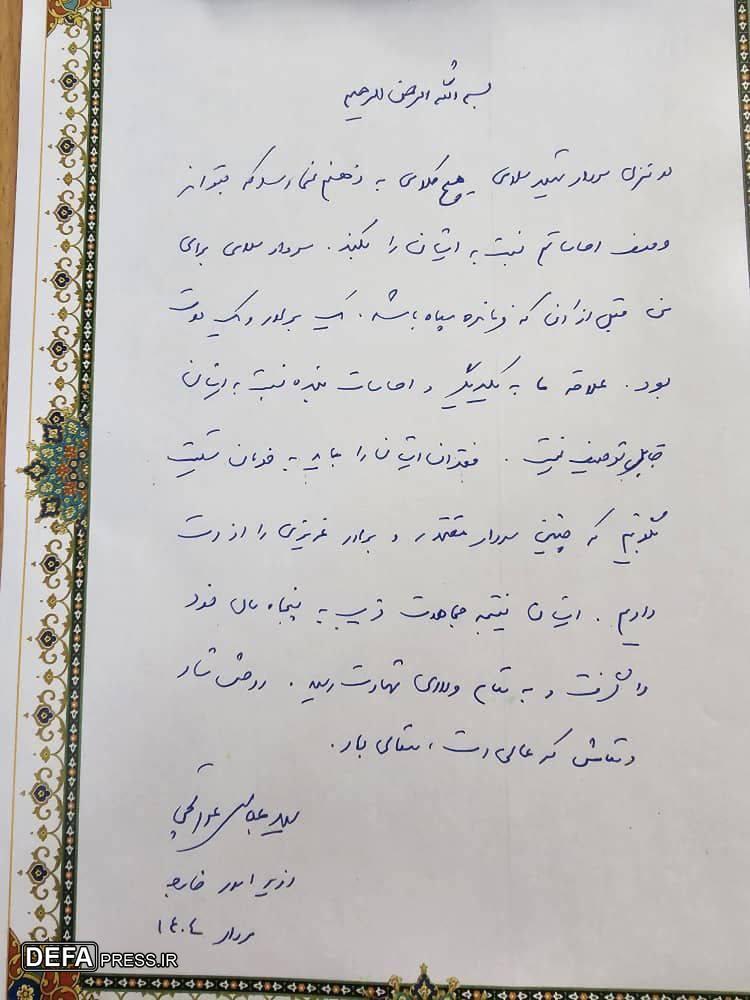 بسم الله الرحمن الرحیم
در منزل سردار شهید سلامی هیچ کلامی به ذهنم نمی‌رسد که بتواند
وصف احساساتم نسبت به ایشان را بکند. سردار سلامی برای
من قبل از آن که فرمانده سپاه باشد، یک برادر و یک دوست
بود. علاقه ما به یکدیگر و احساسات بنده نسبت به ایشان
قابل توصیف نیست. فقدان ایشان را باید به خودمان تسلیت
بگوییم که چنین سردار مقتدر و برادر عزیزی را از دست
دادیم. ایشان نتیجه مجاهدت قریب به پنجاه سال خود
را گرفت و به مقام والای شهادت رسید. روحش شاد
و مقامش که عالی است، متعالی باد.
سید عباس عراقچی
وزیر امور خارجه
مرداد ۱۴۰۴
DEFAPRESS.IR